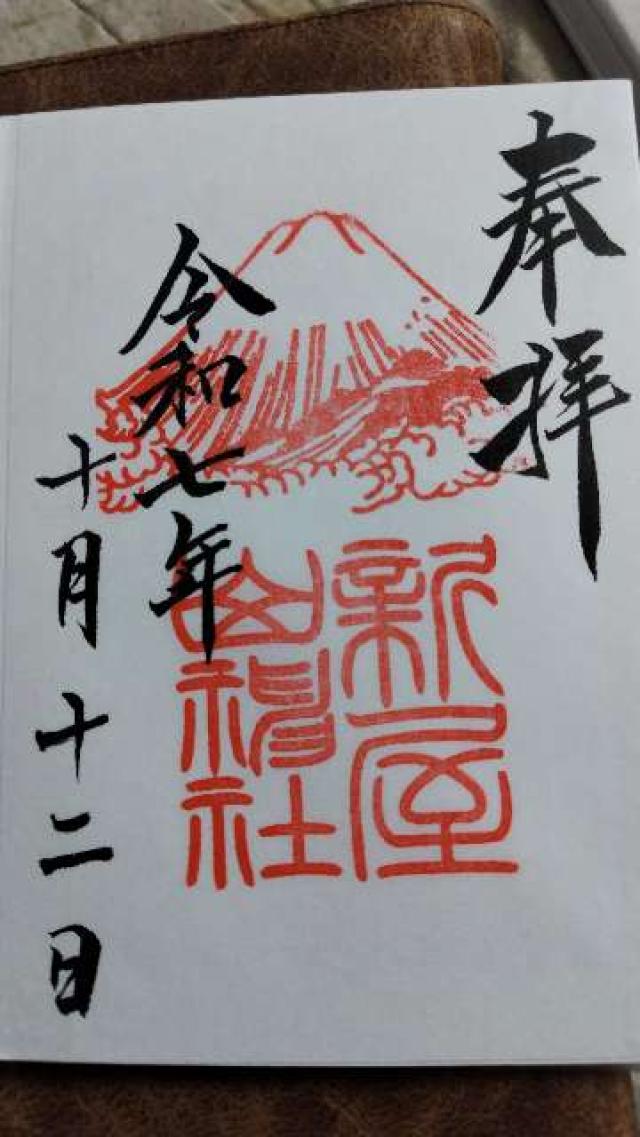 奉拝
新屋
山神社
令和七年
十月十二日